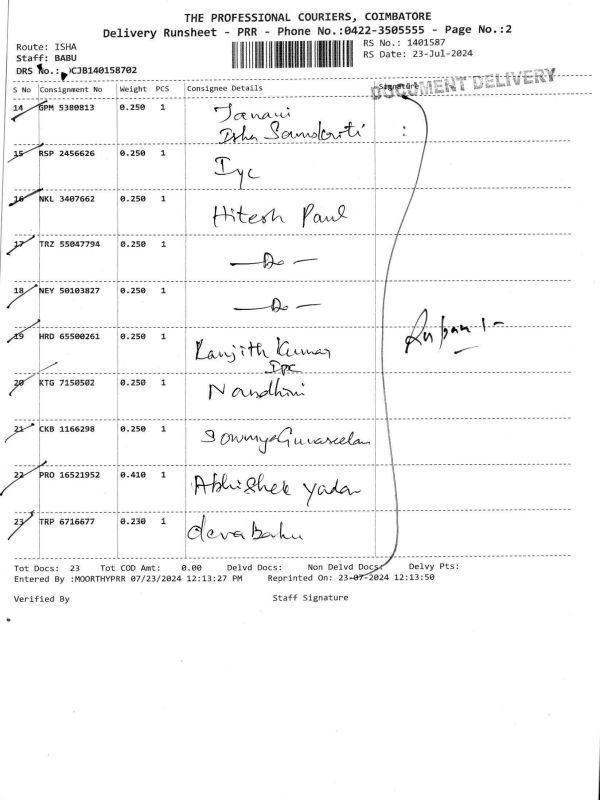 THE PROFESSIONAL COURIERS, COIMBATORE
Delivery Runsheet - PRR - Phone No.:0422-3505555 - Page No.:2
Route: ISHA
Staff: BABU
DRS No.: CJB140158702
RS No.: 1401587
RS Date: 23-Jul-2024
DOCUMENT DELIVERY
S No Consignment No Weight PCS Consignee Details Signature
14 GPM 5380813 0.250 1 Janani
Isha Samskriti :
15 RSP 2456626 0.250 1 Iyc
16 NKL 3407662 0.250 1 Hitesh Paul
17 TRZ 55047794 0.250 1 — Do —
18 NEY 50103827 0.250 1 — Do —
19 HRD 65500261 0.250 1 Ranjith Kumar
Ipc
20 KTG 7150502 0.250 1 Nandhini
21 CKB 1166298 0.250 1 Sowmya Gunaseelan
22 PRO 16521952 0.410 1 Abhishek Yadav
23 TRP 6716677 0.230 1 deva Babu
Tot Docs: 23 Tot COD Amt: 0.00 Delvd Docs: Non Delvd Docs: Delvy Pts:
Entered By :MOORTHYPRR 07/23/2024 12:13:27 PM Reprinted On: 23-07-2024 12:13:50
Verified By Staff Signature